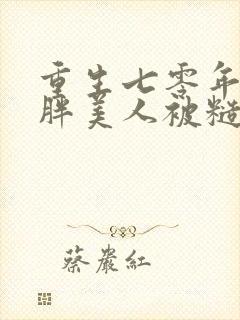 重生七零年
胖美人被糙
蔡嚴紅